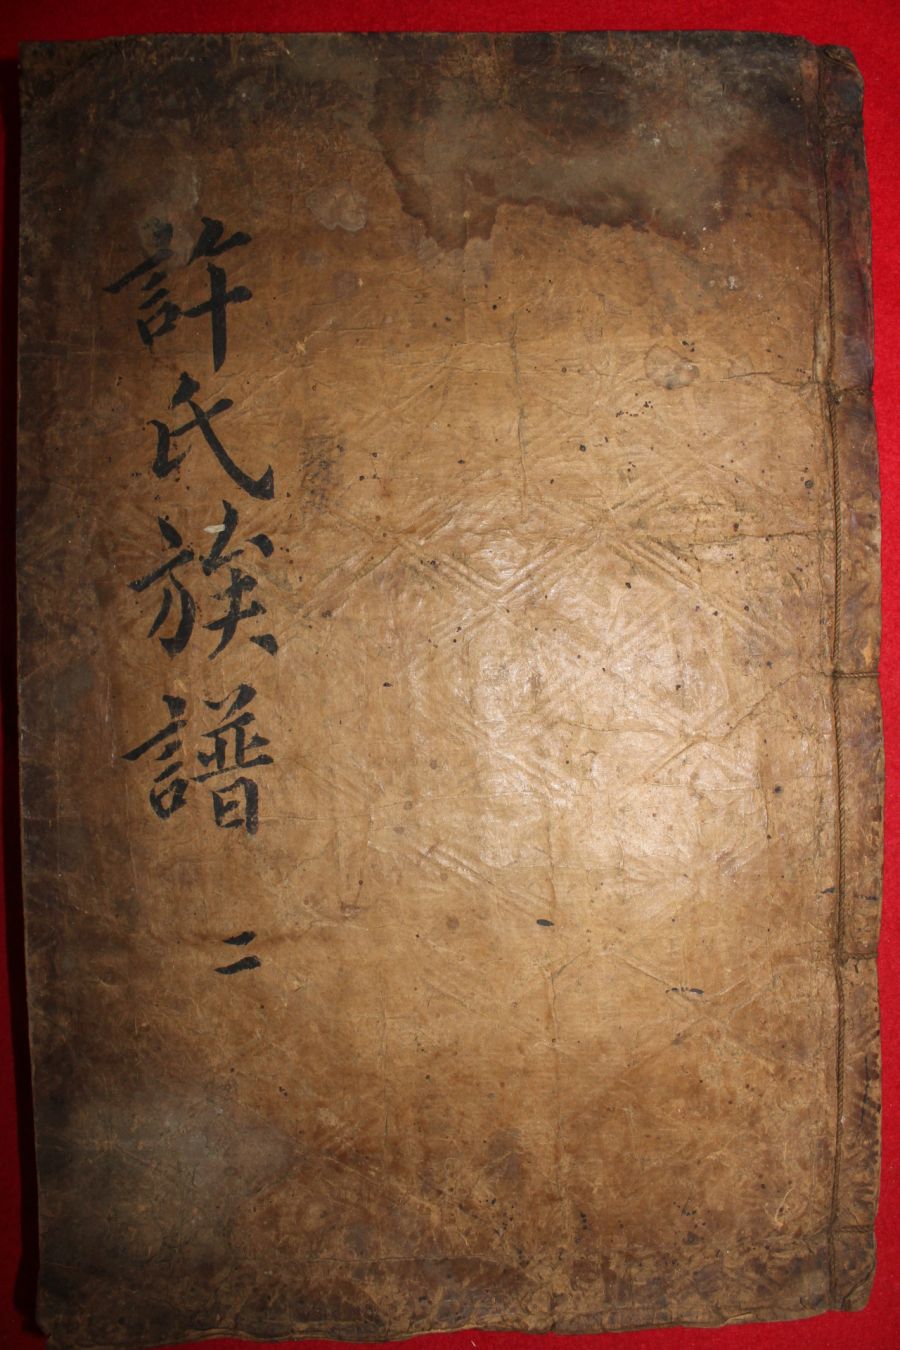 許氏族譜 二